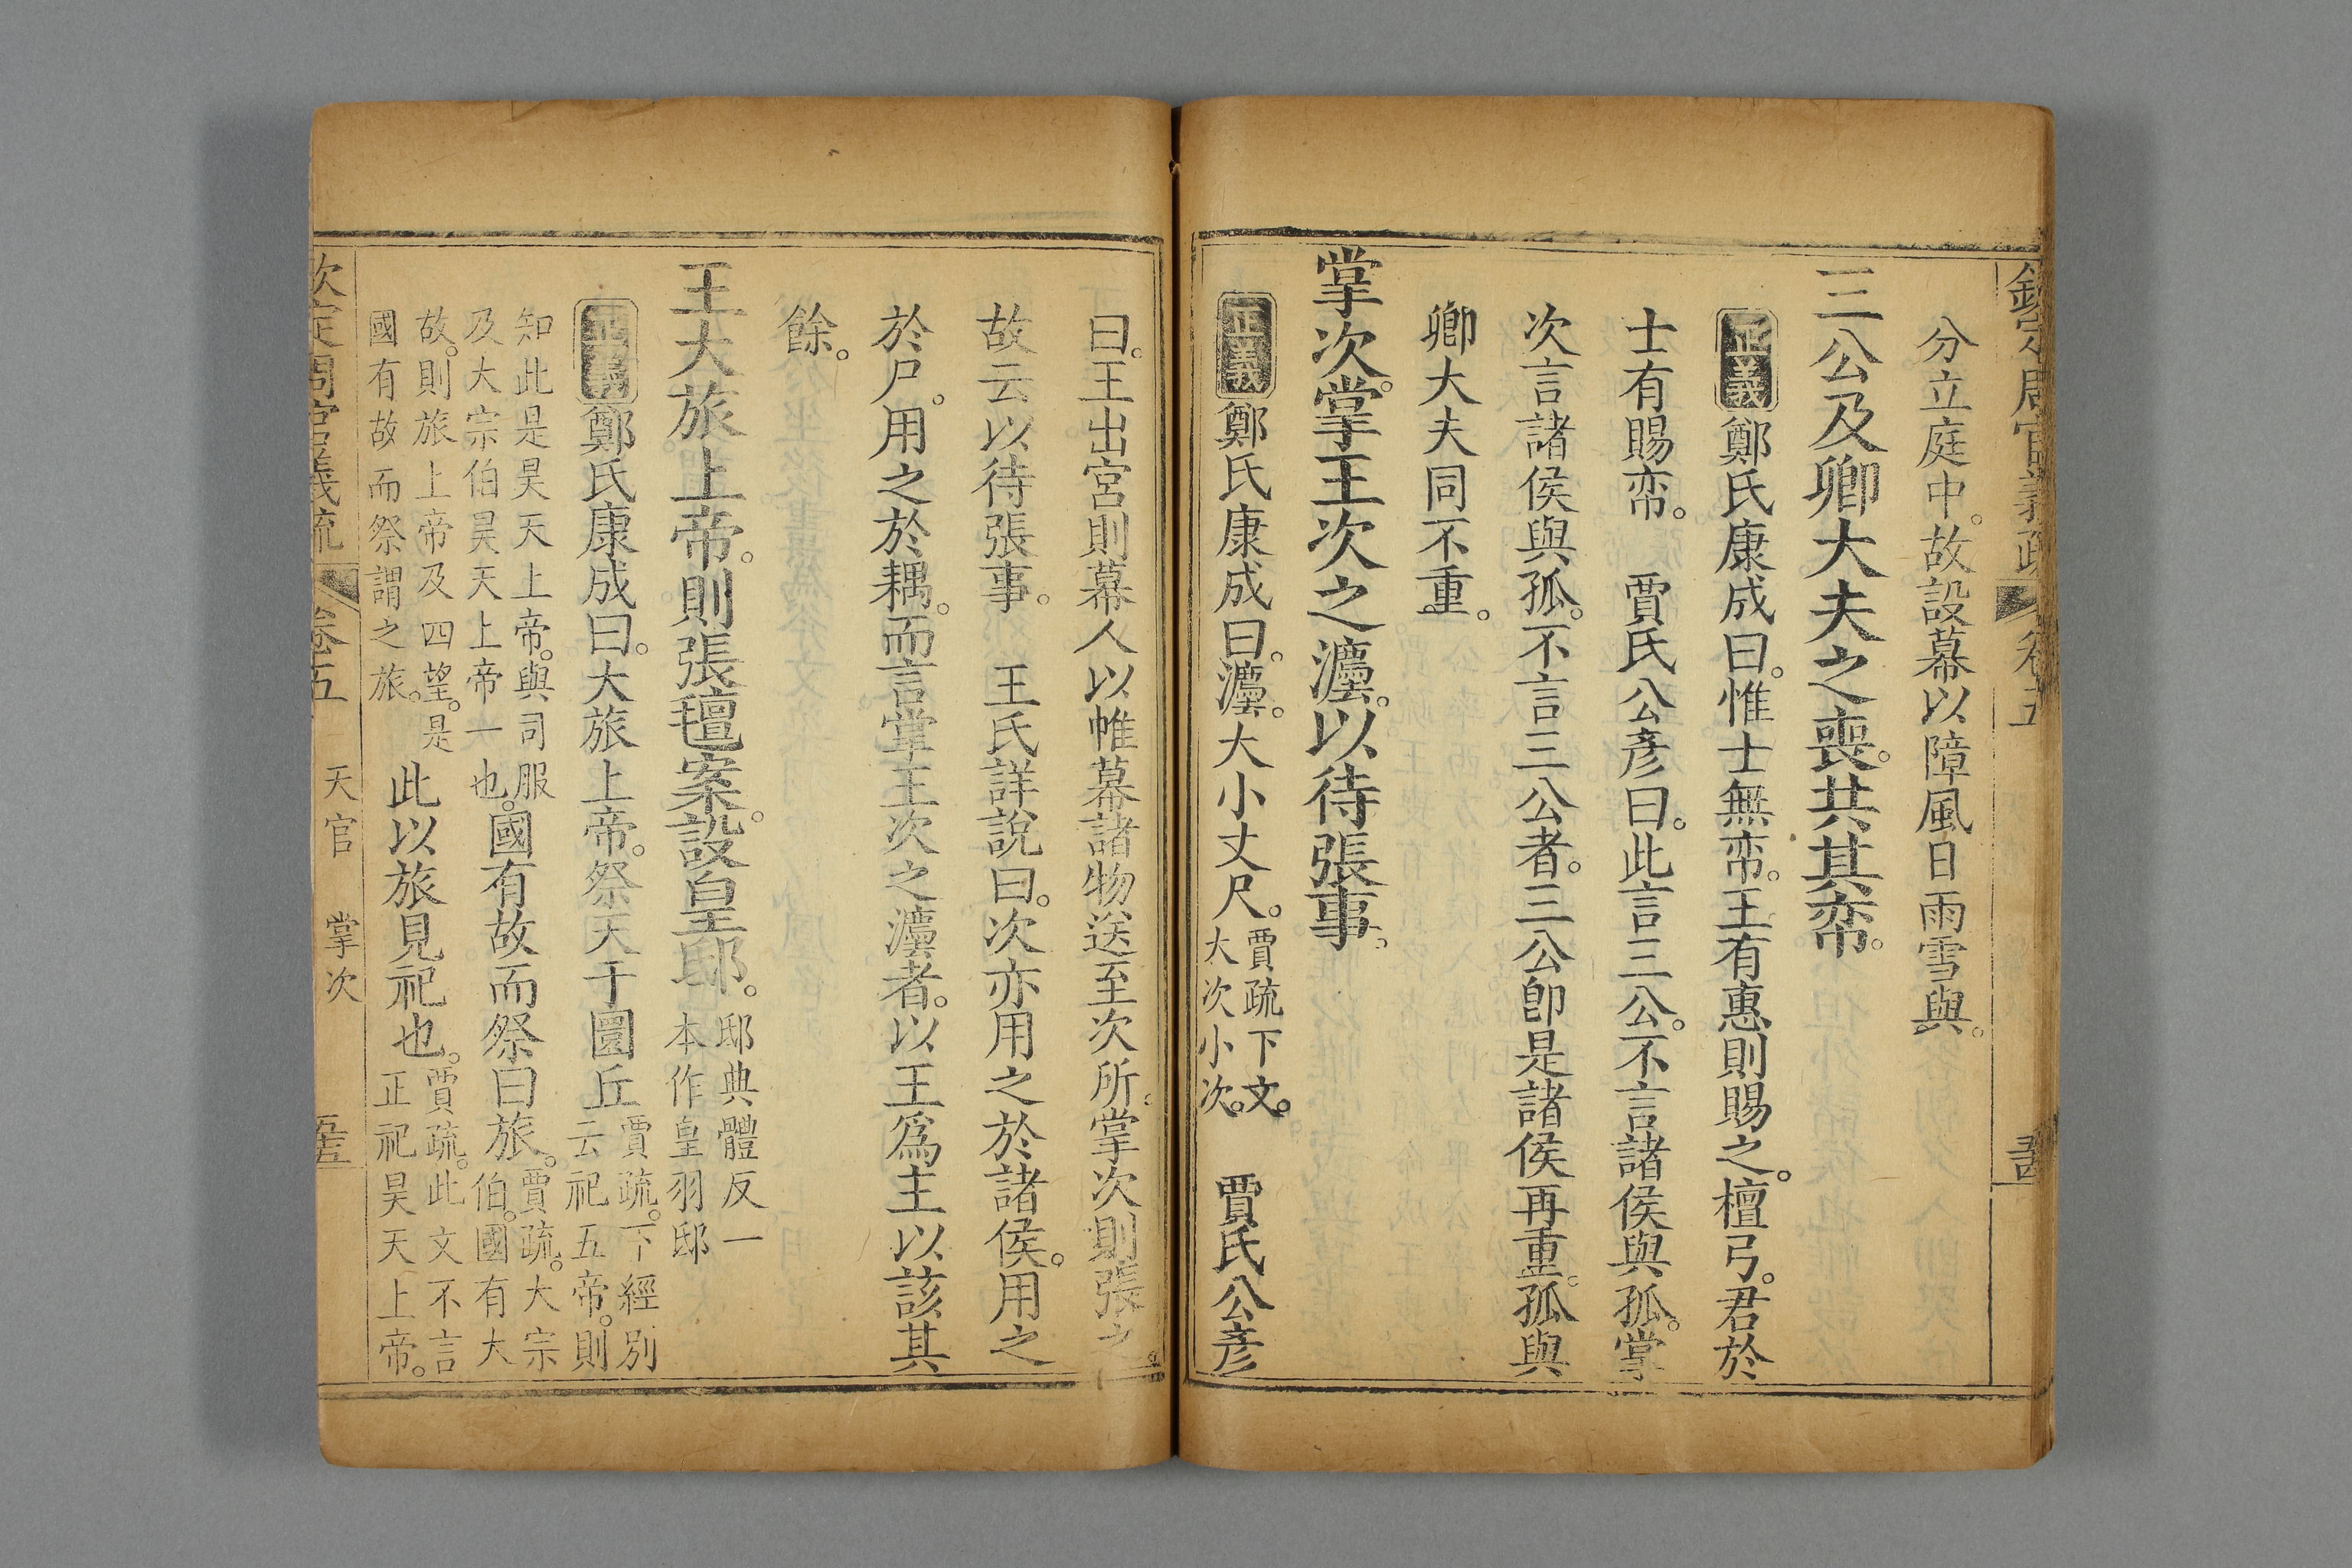 欽定周官義疏 卷五 五十四
分立庭中。故設幕以障風日雨雪與。
三公及卿大夫之喪。共其帟。
正義 鄭氏康成曰。惟士無帟。王有惠則賜之。檀弓。君於
士有賜帟。 賈氏公彥曰。此言三公。不言諸侯與孤。掌
次言諸侯與孤。不言三公者。三公卽是諸侯再重。孤與
卿大夫同不重。
掌次。掌王次之灋。以待張事。
正義 鄭氏康成曰。灋。大小丈尺。賈疏下文。大次小次。 賈氏公彥
曰。王出宮則幕人以帷幕諸物送至次所。掌次則張之。
故云以待張事。 王氏詳說曰。次亦用之於諸侯。用之
於尸。用之於耦。而言掌王次之灋者。以王爲主以該其
餘。
王大旅上帝。則張氊案。設皇邸。邸典體反一本作皇羽邸
正義 鄭氏康成曰。大旅上帝。祭天于圜丘 賈疏。下經別云祀五帝。則
知此是昊天上帝。與司服及大宗伯昊天上帝一也。國有故而祭曰旅。賈疏。大宗伯。國有大
故。則旅上帝及四望。是國有故而祭謂之旅。此以旅見祀也。賈疏。此文不言正祀昊天上帝。
欽定周官義疏 卷五 天官 掌次 五十五